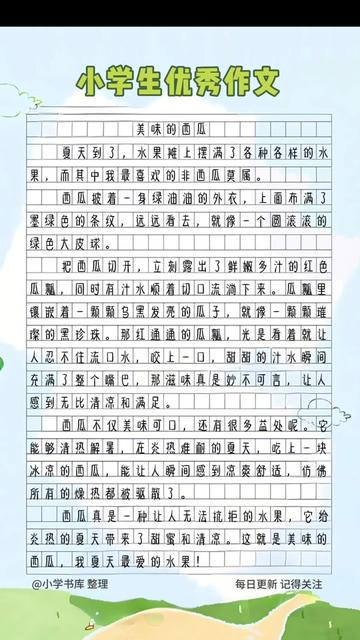 小学生优秀作文
美味的西瓜
夏天到了,水果摊上摆满了各种各样的水
果,而其中我最喜欢的非西瓜莫属。
西瓜披着一身绿油油的外衣,上面布满了
墨绿色的条纹,远远看去,就像一个圆滚滚的
绿色大皮球。
把西瓜切开,立刻露出了鲜嫩多汁的红色
瓜瓤,同时有汁水顺着切口流淌下来。瓜瓤里
镶嵌着一颗颗乌黑发亮的瓜子,就像一颗颗璀
璨的黑珍珠。那红通通的瓜瓤,光是看着就让
人忍不住流口水,咬上一口,甜甜的汁水瞬间
充满了整个嘴巴,那滋味真是妙不可言,让人
感到无比清凉和满足。
西瓜不仅美味可口,还有很多益处呢。它
能够清热解暑,在炎热难耐的夏天,吃上一块
冰凉的西瓜,能让人瞬间感到凉爽舒适,仿佛
所有的燥热都被驱散了。
西瓜真是一种让人无法抗拒的水果,它给
炎热的夏天带来了甜蜜和清凉。这就是美味的
西瓜,我夏天最爱的水果!
@小学书库 整理
每日更新 记得关注